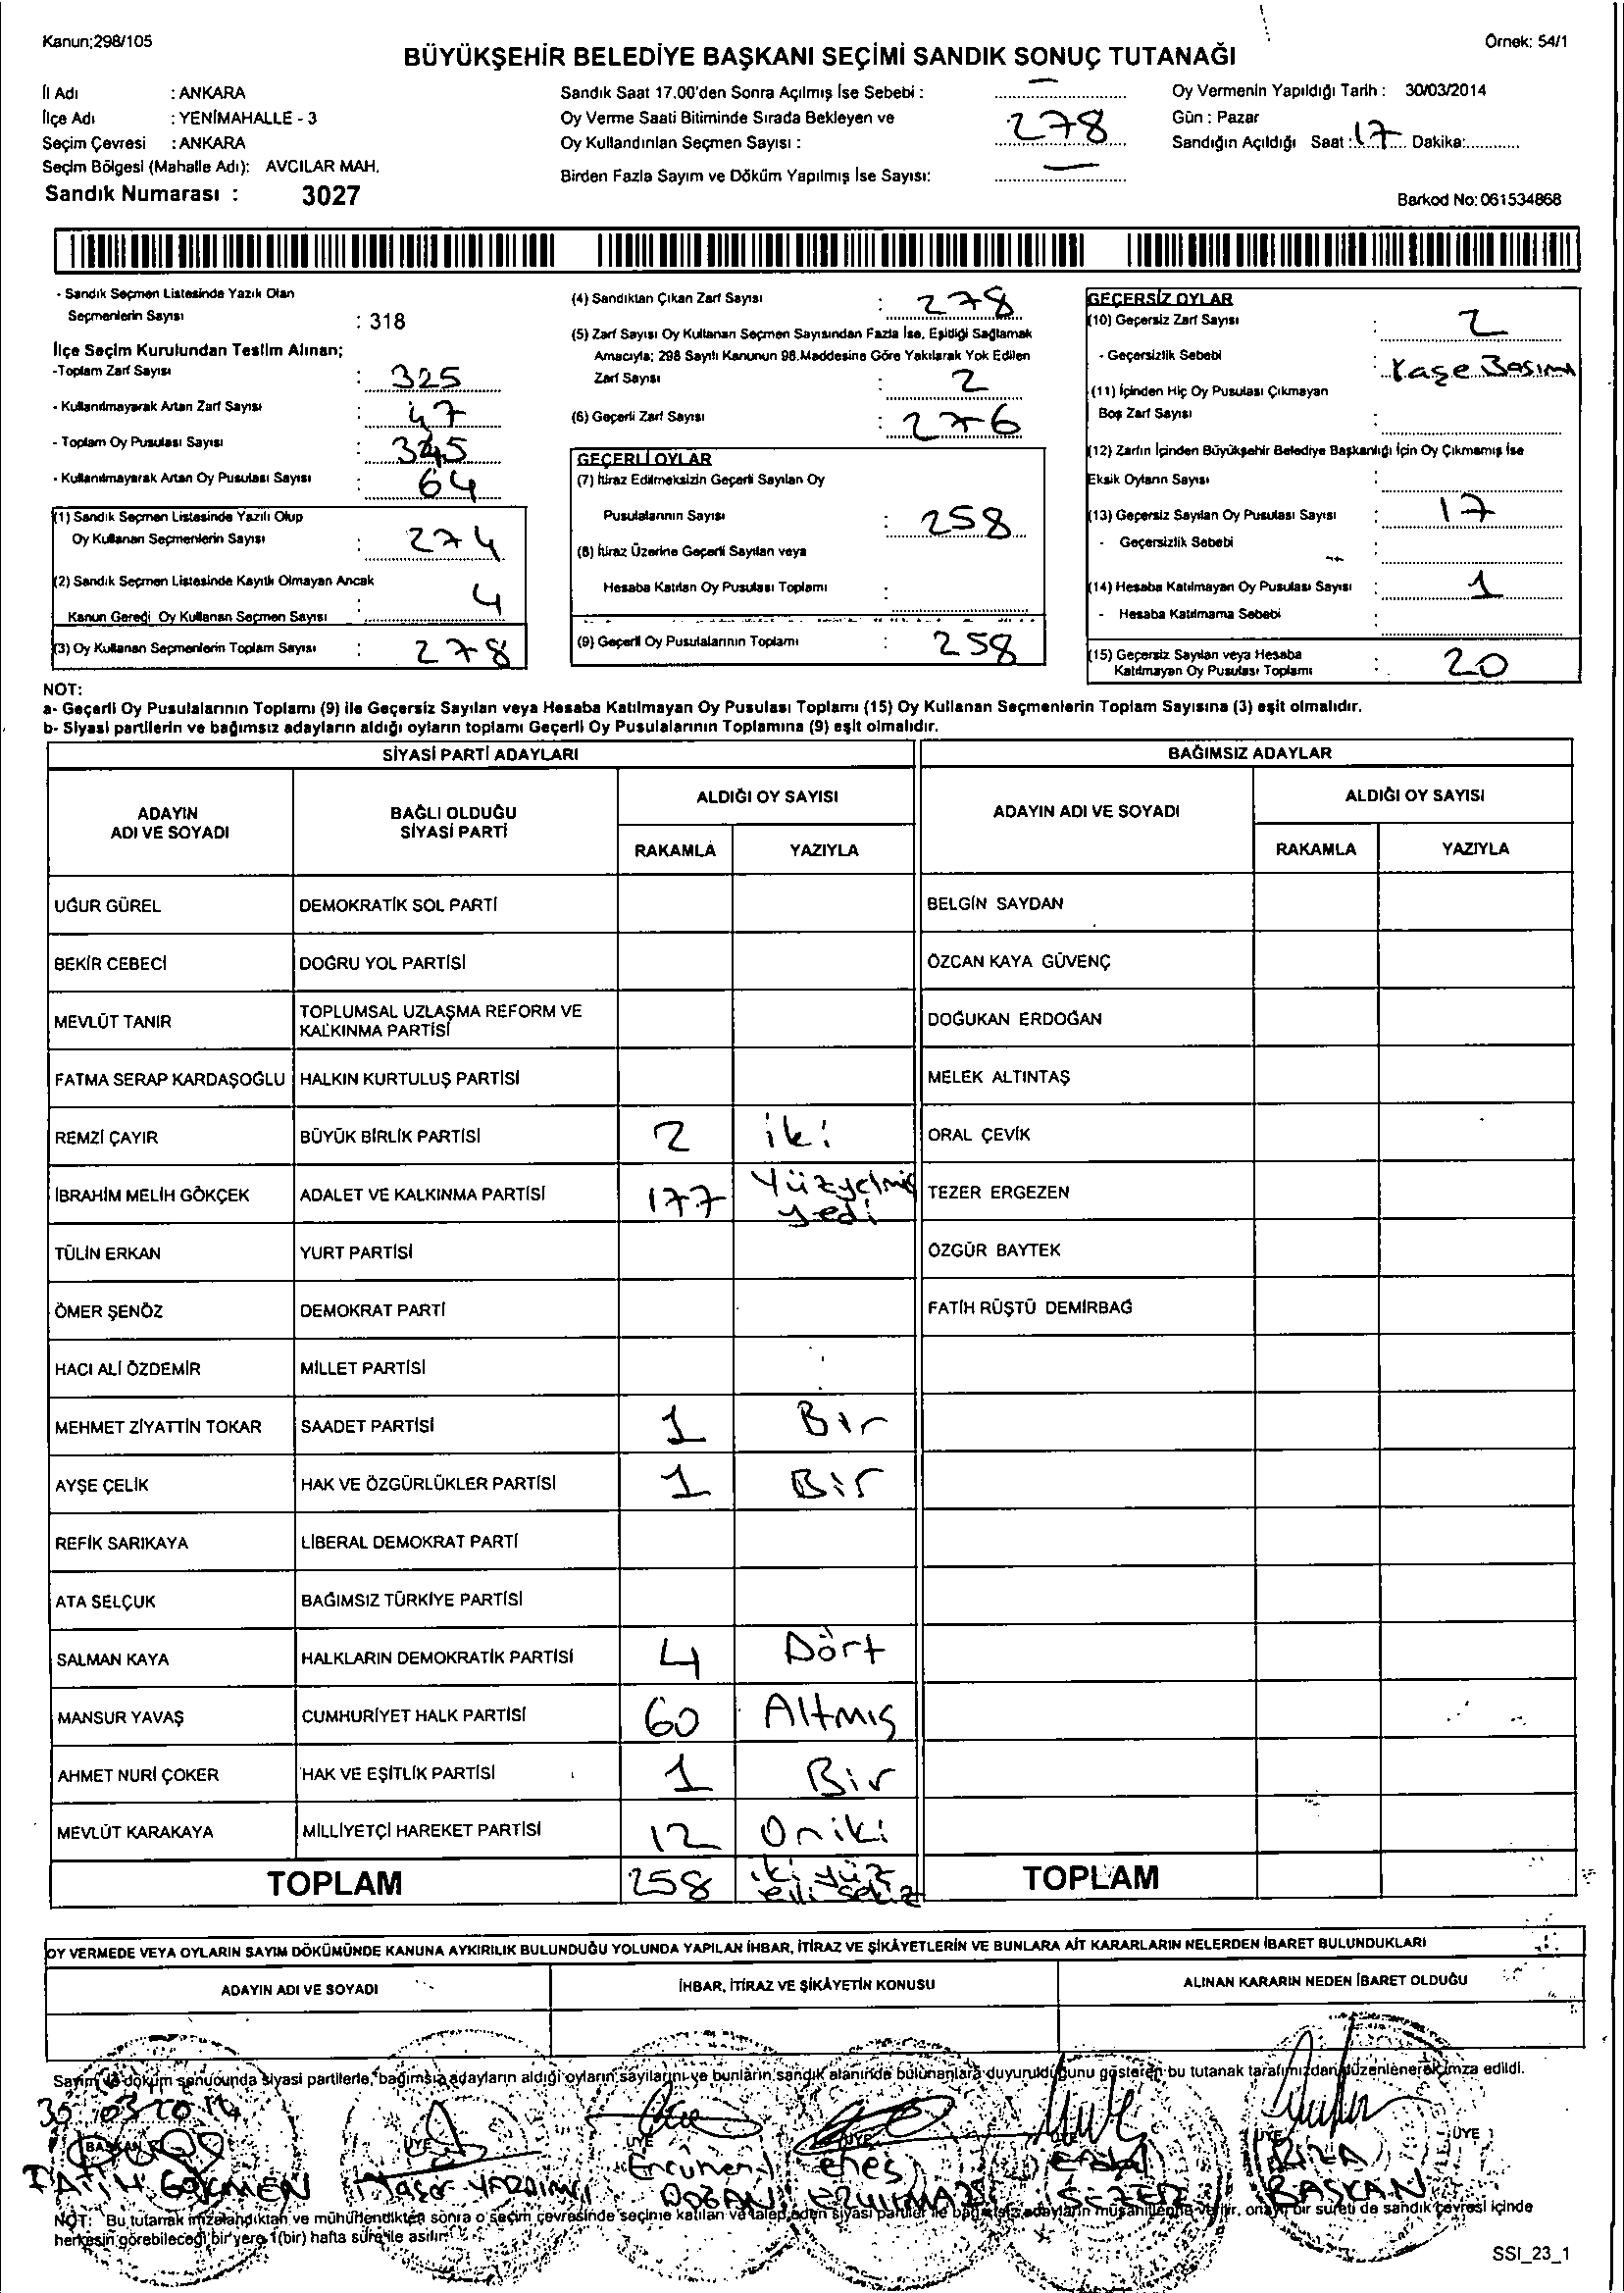 Kanun;298/105
Örnek: 54/1
BÜYÜKŞEHİR BELEDİYE BAŞKANI SEÇİMİ SANDIK SONUÇ TUTANAĞI
İl Adı : ANKARA
İlçe Adı : YENİMAHALLE - 3
Seçim Çevresi : ANKARA
Seçim Bölgesi (Mahalle Adı): AVCILAR MAH.
Sandık Numarası : 3027
Sandık Saat 17.00'den Sonra Açılmış İse Sebebi : —
Oy Verme Saati Bitiminde Sırada Bekleyen ve
Oy Kullandırılan Seçmen Sayısı : 278
Birden Fazla Sayım ve Döküm Yapılmış İse Sayısı: —
Oy Vermenin Yapıldığı Tarih : 30/03/2014
Gün : Pazar
Sandığın Açıldığı Saat : 17 Dakika:
Barkod No: 061534868
- Sandık Seçmen Listesinde Yazılı Olan
Seçmenlerin Sayısı : 318
İlçe Seçim Kurulundan Teslim Alınan;
-Toplam Zarf Sayısı : 325
- Kullanılmayarak Artan Zarf Sayısı : 47
- Toplam Oy Pusulası Sayısı : 345
- Kullanılmayarak Artan Oy Pusulası Sayısı : 64
(1) Sandık Seçmen Listesinde Yazılı Olup
Oy Kullanan Seçmenlerin Sayısı : 274
(2) Sandık Seçmen Listesinde Kayıtlı Olmayan Ancak
Kanun Gereği Oy Kullanan Seçmen Sayısı : 4
(3) Oy Kullanan Seçmenlerin Toplam Sayısı : 278
(4) Sandıktan Çıkan Zarf Sayısı : 278
(5) Zarf Sayısı Oy Kullanan Seçmen Sayısından Fazla İse, Eşitliği Sağlamak
Amacıyla; 298 Sayılı Kanunun 98.Maddesine Göre Yakılarak Yok Edilen
Zarf Sayısı : 2
(6) Geçerli Zarf Sayısı : 276
GEÇERLİ OYLAR
(7) İtiraz Edilmeksizin Geçerli Sayılan Oy
Pusulalarının Sayısı : 258
(8) İtiraz Üzerine Geçerli Sayılan veya
Hesaba Katılan Oy Pusulası Toplamı :
(9) Geçerli Oy Pusulalarının Toplamı : 258
GEÇERSİZ OYLAR
(10) Geçersiz Zarf Sayısı : 2
- Geçersizlik Sebebi : Kaşe Basımı
(11) İçinden Hiç Oy Pusulası Çıkmayan
Boş Zarf Sayısı :
(12) Zarfın İçinden Büyükşehir Belediye Başkanlığı İçin Oy Çıkmamış İse
Eksik Oyların Sayısı :
(13) Geçersiz Sayılan Oy Pusulası Sayısı : 17
- Geçersizlik Sebebi :
(14) Hesaba Katılmayan Oy Pusulası Sayısı : 1
- Hesaba Katılmama Sebebi :
(15) Geçersiz Sayılan veya Hesaba
Katılmayan Oy Pusulası Toplamı : 20
NOT:
a- Geçerli Oy Pusulalarının Toplamı (9) ile Geçersiz Sayılan veya Hesaba Katılmayan Oy Pusulası Toplamı (15) Oy Kullanan Seçmenlerin Toplam Sayısına (3) eşit olmalıdır.
b- Siyasi partilerin ve bağımsız adayların aldığı oyların toplamı Geçerli Oy Pusulalarının Toplamına (9) eşit olmalıdır.
SİYASİ PARTİ ADAYLARI
ADAYIN ADI VE SOYADI
BAĞLI OLDUĞU SİYASİ PARTİ
ALDIĞI OY SAYISI
RAKAMLA YAZIYLA
UĞUR GÜREL DEMOKRATİK SOL PARTİ
BEKİR CEBECİ DOĞRU YOL PARTİSİ
MEVLÜT TANIR TOPLUMSAL UZLAŞMA REFORM VE KALKINMA PARTİSİ
FATMA SERAP KARDAŞOĞLU HALKIN KURTULUŞ PARTİSİ
REMZİ ÇAYIR BÜYÜK BİRLİK PARTİSİ 2 iki
İBRAHİM MELİH GÖKÇEK ADALET VE KALKINMA PARTİSİ 177 Yüzyetmiş yedi
TÜLİN ERKAN YURT PARTİSİ
ÖMER ŞENÖZ DEMOKRAT PARTİ
HACI ALİ ÖZDEMİR MİLLET PARTİSİ
MEHMET ZİYATTİN TOKAR SAADET PARTİSİ 1 Bir
AYŞE ÇELİK HAK VE ÖZGÜRLÜKLER PARTİSİ 1 Bir
REFİK SARIKAYA LİBERAL DEMOKRAT PARTİ
ATA SELÇUK BAĞIMSIZ TÜRKİYE PARTİSİ
SALMAN KAYA HALKLARIN DEMOKRATİK PARTİSİ 4 Dört
MANSUR YAVAŞ CUMHURİYET HALK PARTİSİ 60 Altmış
AHMET NURİ ÇOKER HAK VE EŞİTLİK PARTİSİ 1 Bir
MEVLÜT KARAKAYA MİLLİYETÇİ HAREKET PARTİSİ 12 Oniki
TOPLAM 258 ikiyüz elli sekiz
BAĞIMSIZ ADAYLAR
ADAYIN ADI VE SOYADI
ALDIĞI OY SAYISI
RAKAMLA YAZIYLA
BELGİN SAYDAN
ÖZCAN KAYA GÜVENÇ
DOĞUKAN ERDOĞAN
MELEK ALTINTAŞ
ORAL ÇEVİK
TEZER ERGEZEN
ÖZGÜR BAYTEK
FATİH RÜŞTÜ DEMİRBAĞ
TOPLAM
OY VERMEDE VEYA OYLARIN SAYIM DÖKÜMÜNDE KANUNA AYKIRILIK BULUNDUĞU YOLUNDA YAPILAN İHBAR, İTİRAZ VE ŞİKÂYETLERİN VE BUNLARA AİT KARARLARIN NELERDEN İBARET BULUNDUKLARI
ADAYIN ADI VE SOYADI
İHBAR, İTİRAZ VE ŞİKÂYETİN KONUSU
ALINAN KARARIN NEDEN İBARET OLDUĞU
Sayım ve döküm sonucunda siyasi partilerle, bağımsız adayların aldığı oyların sayılarını ve bunların sandık alanında bulunanlara duyurulduğunu gösteren bu tutanak tarafımızdan düzenlenerek imza edildi.
30 03 2014
BAŞKAN ÜYE ÜYE ÜYE ÜYE ÜYE
FATİH GÖKMEN Yaşar YARDIMCI DOĞAN enes SEZER RIZA BAŞKAN
NOT: Bu tutanak imzalandıktan ve mühürlendikten sonra o seçim çevresinde seçime katılan ve talep eden siyasi partiler ile bağımsız adayların müşahitlerine verilir, onaylı bir sureti de sandık çevresi içinde
herkesin görebileceği bir yere 1(bir) hafta süre ile asılır.
SSI_23_1